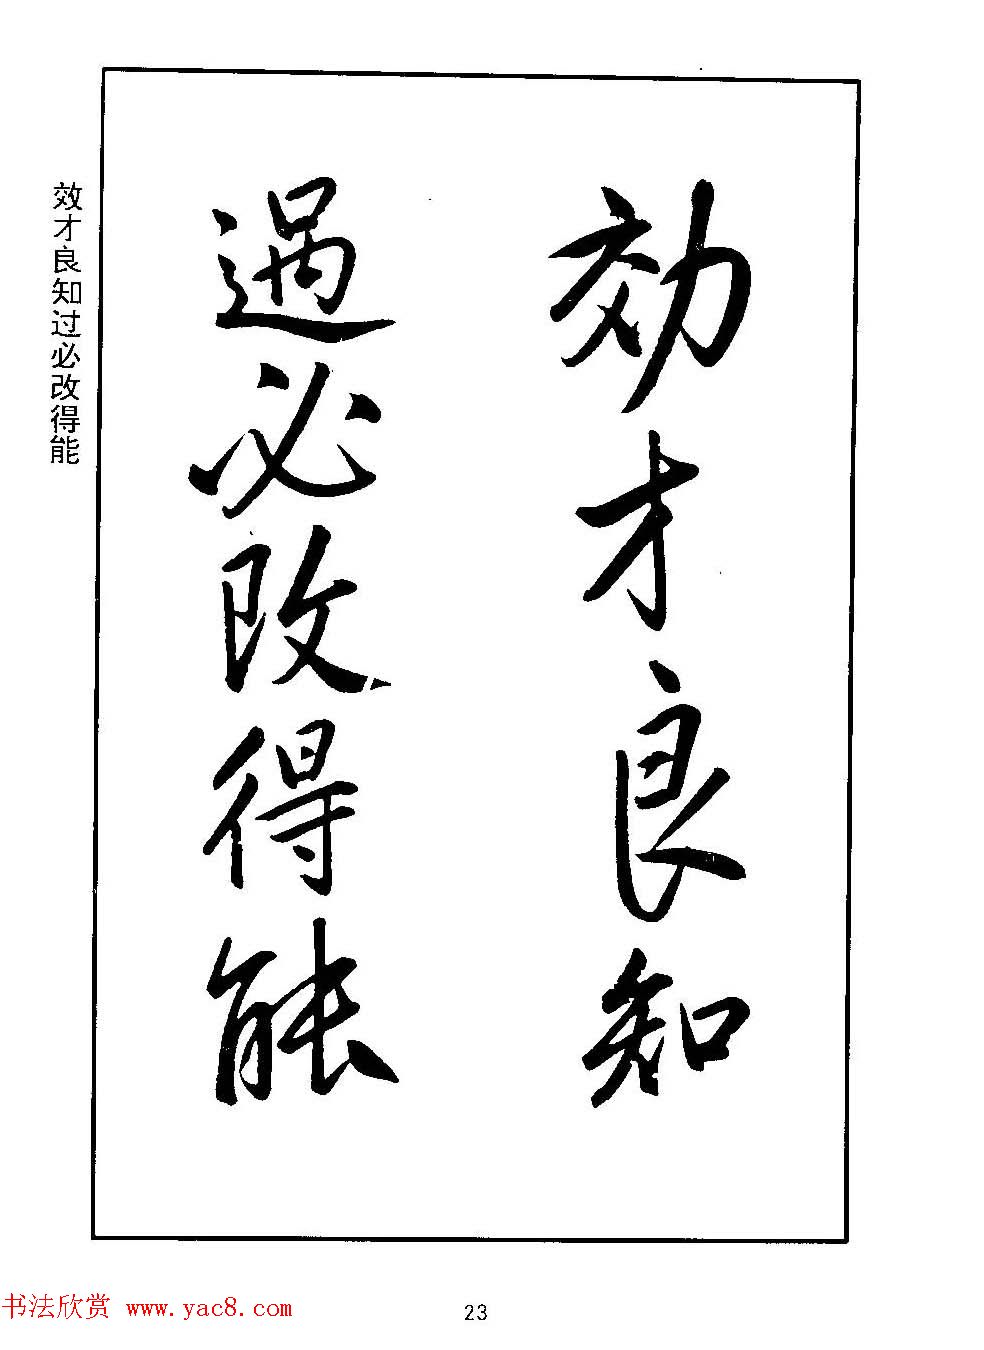 効才良知
過必改得能
效才良知过必改得能
书法欣赏 www.yac8.com
23